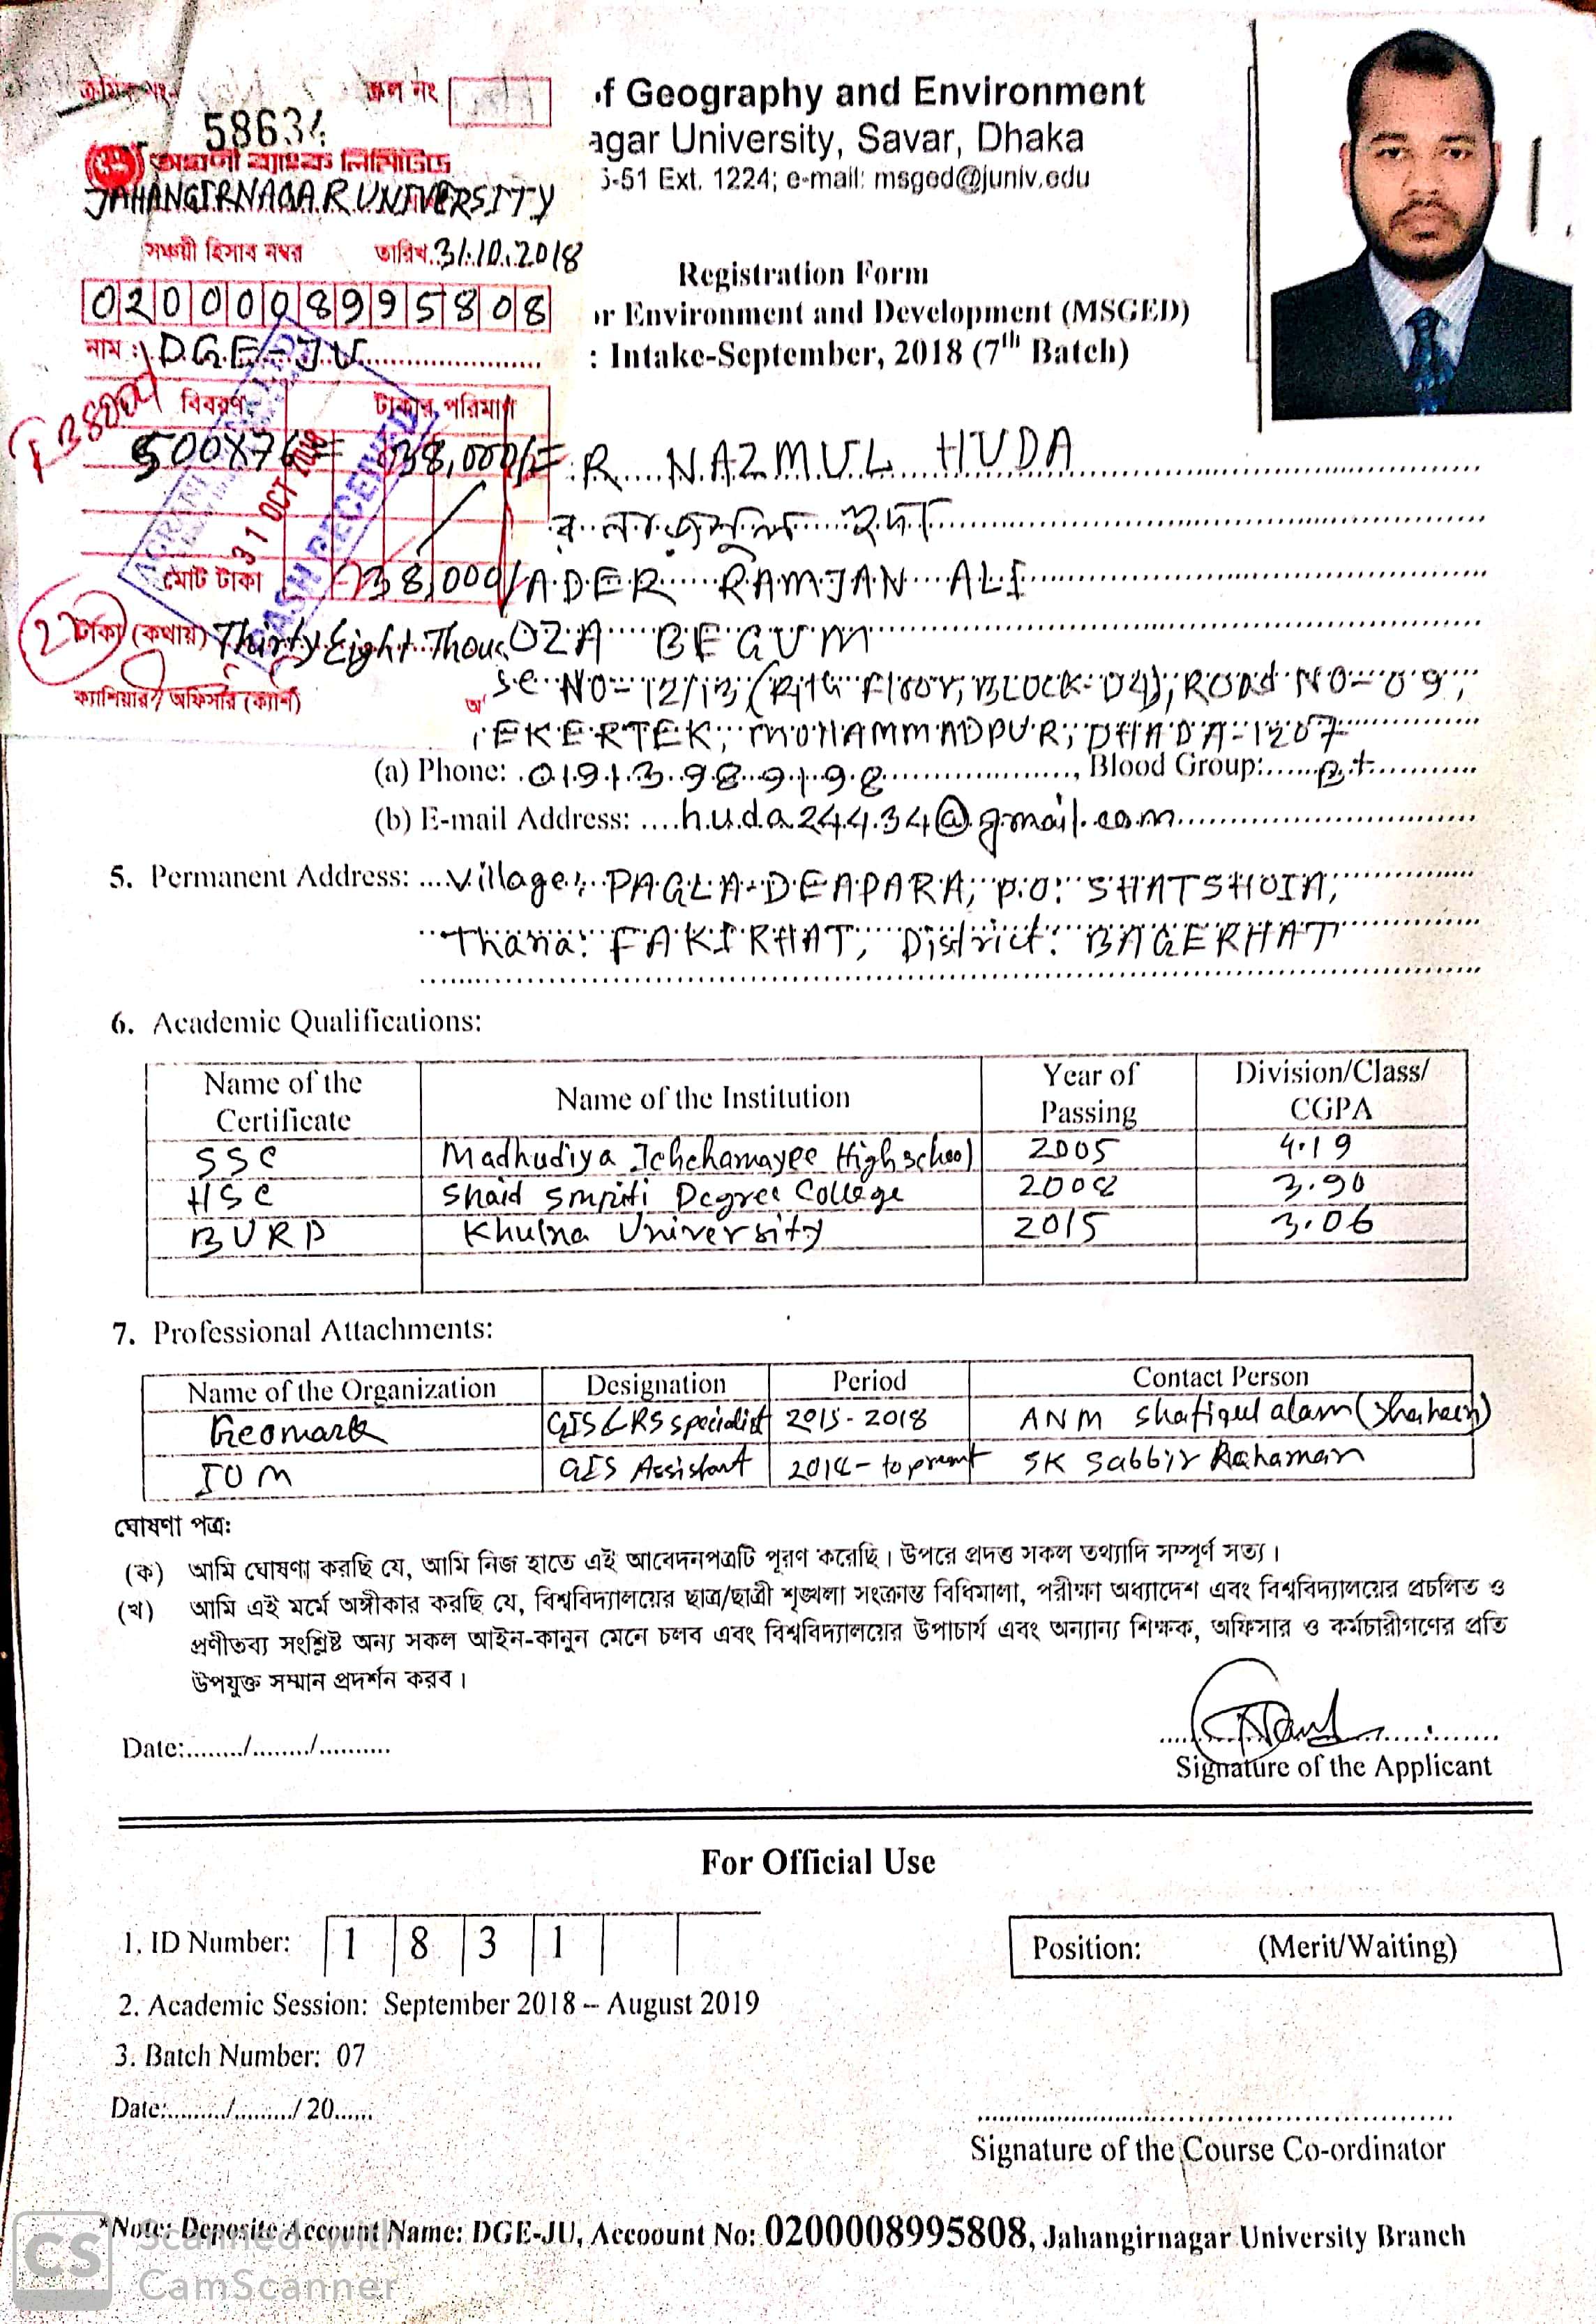 ক্রমিক নং- জল নং
58634
অগ্রণী ব্যাংক লিমিটেড
JAHANGIRNAGAR UNIVERSITY
সঞ্চয়ী হিসাব নম্বর তারিখ 31.10.2018
0200008995808
নাম : DGE-JU
বিবরণ টাকার পরিমাণ
500X76= 38,000/=
31 OCT 2018
CASH RECEIVED
মোট টাকা 38,000/
টাকা (কথায়) Thirty Eight Thous
ক্যাশিয়ার / অফিসার (ক্যাশ)
f Geography and Environment
agar University, Savar, Dhaka
-51 Ext. 1224; e-mail: msged@juniv.edu
Registration Form
r Environment and Development (MSGED)
: Intake-September, 2018 (7th Batch)
R NAZMUL HUDA
র নাজমুল হুদা
ADER RAMJAN ALI
OZA BEGUM
se NO- 12/13 ( Floor, BLOCK-04), ROAD NO-09,
EKERTEK, MOHAMMADPUR, DHAKA-1207
(a) Phone: 01913989198, Blood Group: B+
(b) E-mail Address: huda24434@gmail.com
5. Permanent Address: Village: PAGLA-DEAPARA, P.O: SHATSHOIA,
Thana: FAKIRHAT, District: BAGERHAT
6. Academic Qualifications:
Name of the Certificate Name of the Institution Year of Passing Division/Class/ CGPA
SSC Madhudiya Ichchamayee High school 2005 4.19
HSC Shaid Smriti Degree College 2008 3.90
BURP Khulna University 2015 3.06
7. Professional Attachments:
Name of the Organization Designation Period Contact Person
Geomark GIS & RS specialist 2015-2018 ANM Shafiqul alam (Shaheen)
IOM GIS Assistant 2018- to present SK Sabbir Rahaman
ঘোষণা পত্র:
(ক) আমি ঘোষণা করছি যে, আমি নিজ হাতে এই আবেদনপত্রটি পূরণ করেছি। উপরে প্রদত্ত সকল তথ্যাদি সম্পূর্ণ সত্য।
(খ) আমি এই মর্মে অঙ্গীকার করছি যে, বিশ্ববিদ্যালয়ের ছাত্র/ছাত্রী শৃঙ্খলা সংক্রান্ত বিধিমালা, পরীক্ষা অধ্যাদেশ এবং বিশ্ববিদ্যালয়ের প্রচলিত ও
প্রণীতব্য সংশ্লিষ্ট অন্য সকল আইন-কানুন মেনে চলব এবং বিশ্ববিদ্যালয়ের উপাচার্য এবং অন্যান্য শিক্ষক, অফিসার ও কর্মচারীগণের প্রতি
উপযুক্ত সম্মান প্রদর্শন করব।
Date:......../......../..........
Signature of the Applicant
For Official Use
1. ID Number: 1 8 3 1
Position: (Merit/Waiting)
2. Academic Session: September 2018 – August 2019
3. Batch Number: 07
Date:........./........./ 20......
Signature of the Course Co-ordinator
*Note: Deposite Account Name: DGE-JU, Accoount No: 0200008995808, Jahangirnagar University Branch
CS Scanned with
CamScanner